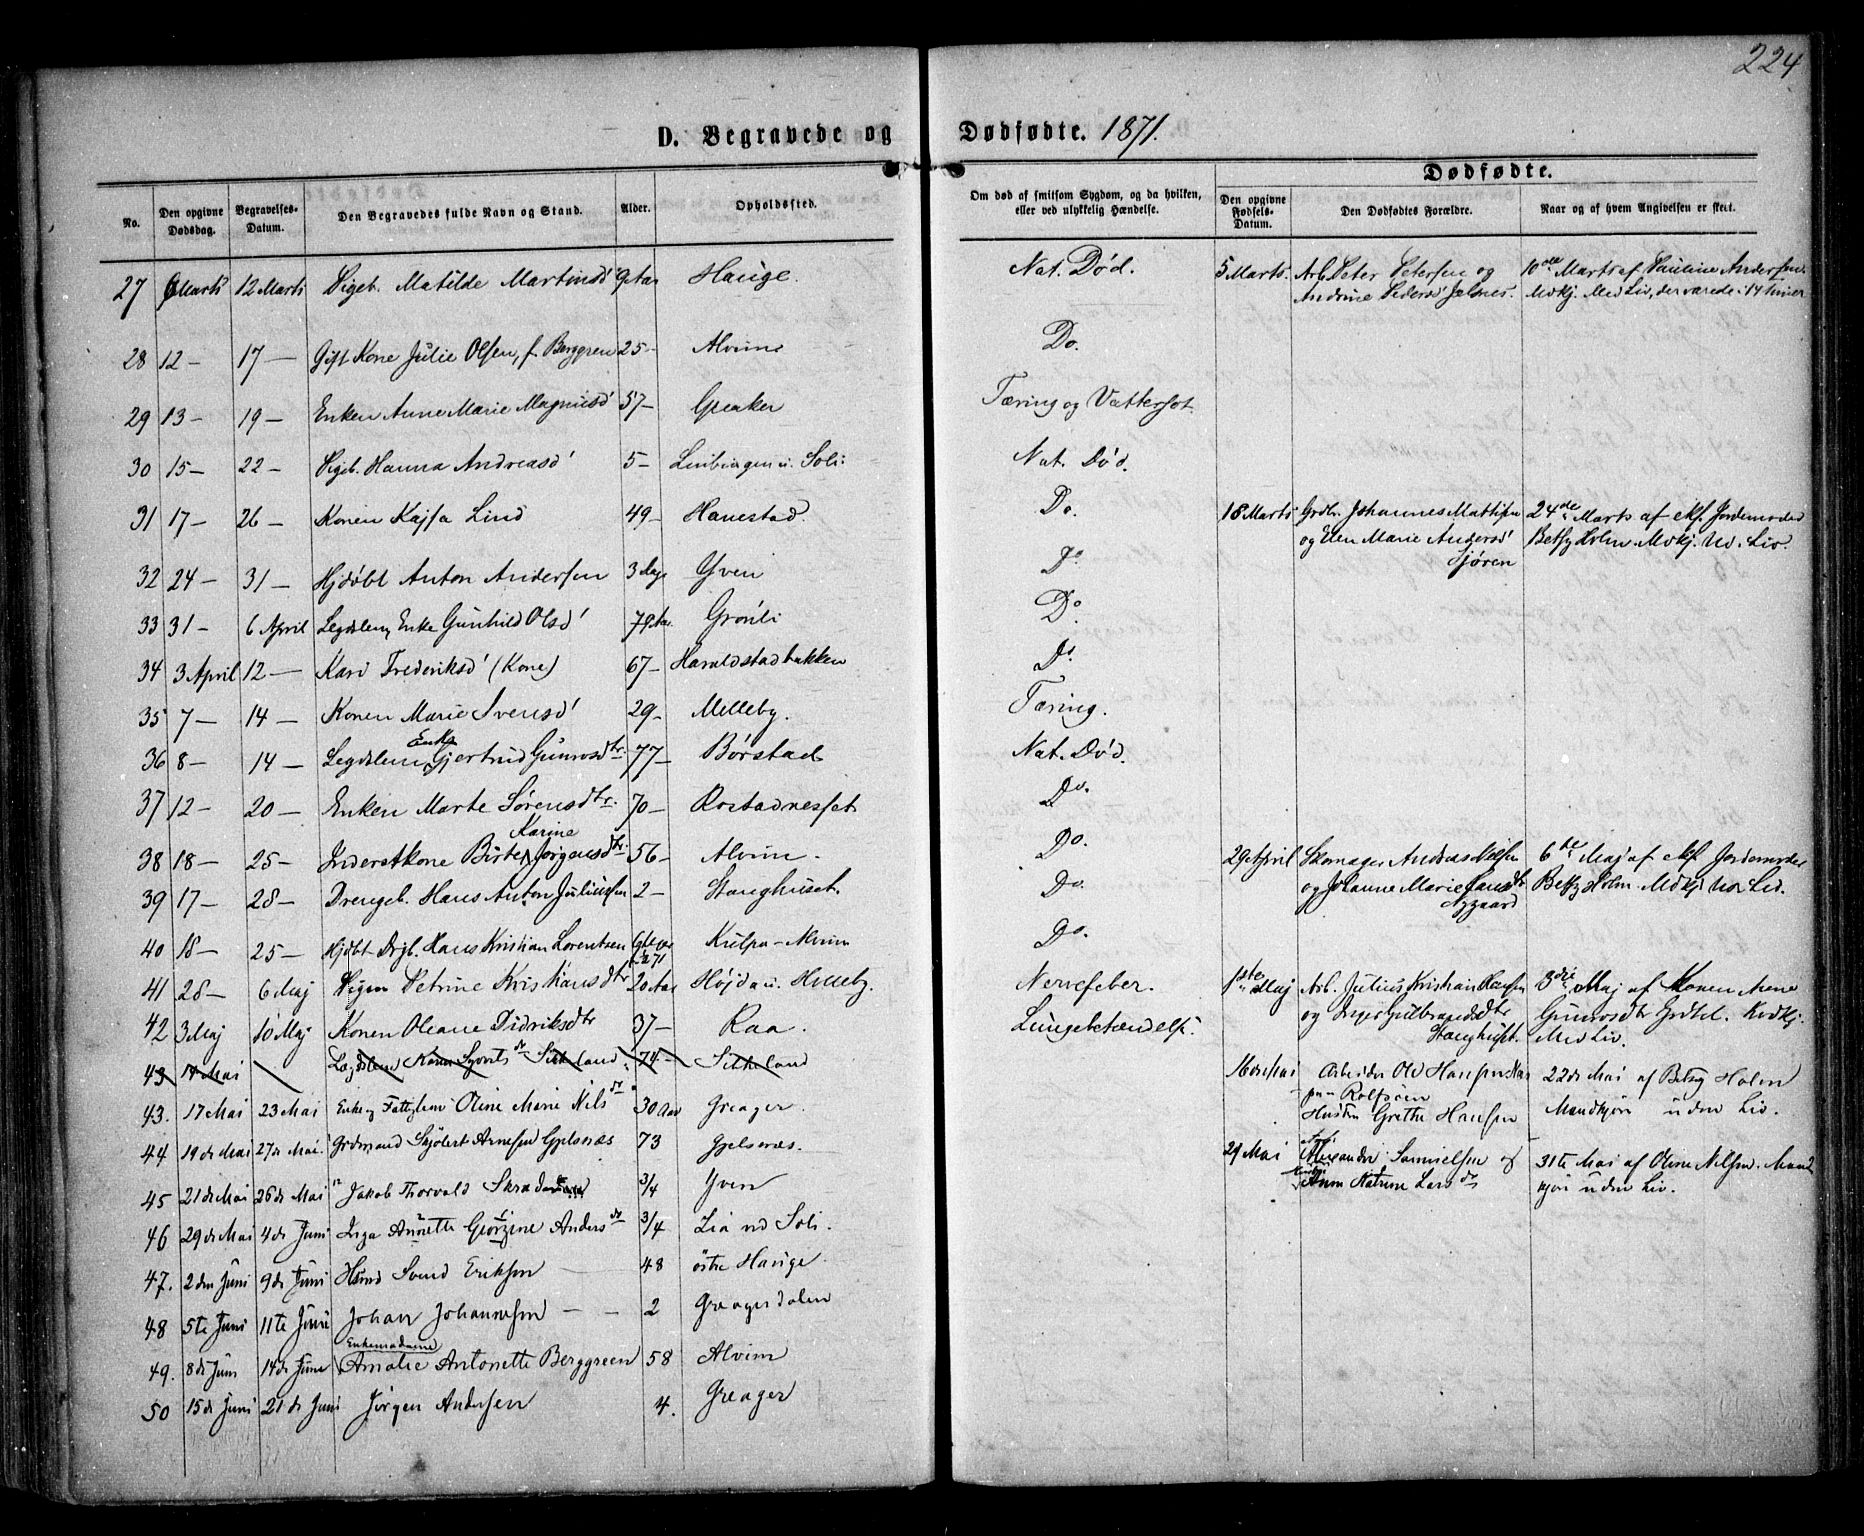 224
D. Begravede og Dødfødte. 1871.
Dødfødte.
No. Den opgivne Dødsdag. Begravelses-Datum. Den Begravedes fulde Navn og Stand. Alder. Opholdssted. Om død af smitsom Sygdom, og da hvilken, eller ved ulykkelig Hændelse. Den opgivne Fødsels-Datum. Den Dødfødtes Forældre. Naar og af hvem Angivelsen er skeet.
27 6 Marts 12 Marts Pigeb. Matilde Martinsd' 9 Aar Hauge. Nat. Død. 5 Marts. Arb. Peter Petersen og 10de Marts af Pauline Andersen.
Andrine Pedersd' Jelsnes. Mdkj. Med Liv, der varede i 14 Timer
28 12 — 17 — Gift Kone Julie Olsen, f. Berggren 25 — Alvim Do.
29 13 — 19 — Enken Anne Marie Magnusd' 57 — Greaker Tæring og Vattersot.
30 15 — 22 — Pigeb. Hanna Andreasd' 5 — u. Soli Nat. Død.
31 17 — 26 — Konen Kajsa Lind 49 — Hanestad. Do. 18 Marts Grdbr. Johannes Mattisen 24de Marts af exf. Jordemoder
og Elen Marie Andersd' Betsy Holm. Mdkj. Ud. Liv.
Sjøren
32 24 — 31 — Hjdøbt Anton Andersen 3 Dage Yven Do
33 31 — 6 April Legdslem, Enke Gunhild Olsd' 79 Aar Grønli Do.
34 3 April 12 — Kari Frederiksd' (Kone) 67 — Haraldstadbakken Do.
35 7 — 14 — Konen Marie Svensd' 29 — Melleby. Tæring.
36 8 — 14 — Legdslem Enke Gjertrud Gunrosdtr. 77 — Børstad Nat. Død.
37 12 — 20 — Enken Marte Sørensdtr. 70 — Rostadnesset Do.
Karine
38 18 — 25 — Inderstkone Birte Jørgensdtr 56 — Alvim. Do. 29 April Skomager Andreas Nilsen 6te Maj af exf. Jordemoder
39 17 — 28 — Drengeb. Hans Anton Juliussen 2 — Stanghuset. Do. og Johanne Marie Hansdtr Betsy Holm. Mdkj. Ud. Liv.
Nygaard
40 18 — 25 — Hjdbt Drgb. Hans Kristian Lorentsen Kulpa — Alvim Do.
41 28 — 6 Maj Pigen Petrine Kristiansdtr 20 Aar Højda u. Helleby. Nervefeber. 1ste Maj Arb. Julius Kristian Hansen 3die Maj af Konen Anne
42 3 Maj 10 Maj Konen Oleane Didriksdtr 37 — Raa. Lungebetændelse. og Inger Gulbrandsdtr Gunrosdtr Grdtel. Kvdkj.
Stanghuset. Med Liv.
43 14 Mai Lægdslem Karen Syverts dr Sikkeland 74 — Sikkeland
16 de Mai Arbeider Ole Hansen 22 de Mai af Betsy Holm
Rolfsøen Mandkjøn uden Liv.
Hustru Grethe Hansen
43. 17 Mai 23 Mai Enke og Fattiglem Oline Marie Nils dr 30 Aar Greager.
44 19 de Mai 27 de Mai. Grdmand Skjølert Arnesen Gjelsenæs 73 Gjelsenæs.
29 Mai Alexander Samuelsen og 31te Mai af Oline Nilsen. Mand
Katrine Lars dr kjøn uden Liv.
45 21 de Mai 26 de Mai Jakob Thorvald 3/4 Yven
46 29 de Mai 4 de Juni Inga Annette Georgine Anders dr 3/4 Lia Soli.
47. 2 den Juni 9 de Juni Hmd Svend Eriksen — 48 østre Hauge.
48 5te Juni 11te Juni Johan Johannesen — — 2 Greagerdalen
Enkemadame
49. 8 de Juni 14 de Juni Amalie Antonette Berggreen 58 Alvim
50 15 de Juni 21 de Juni Jørgen Andersen 4. Greager